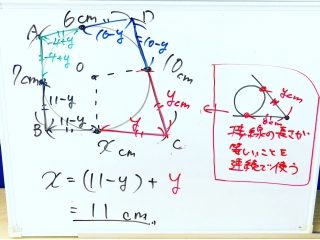 6cm
D
A
-4+y
10-y
10-y
-4+y
7cm
O
10cm
11-y
ycm
B
11-y
xcm
y
C
x = (11-y) + y
= 11cm
ycm
ycm
接線の長さが
等しいことを
連続で使う